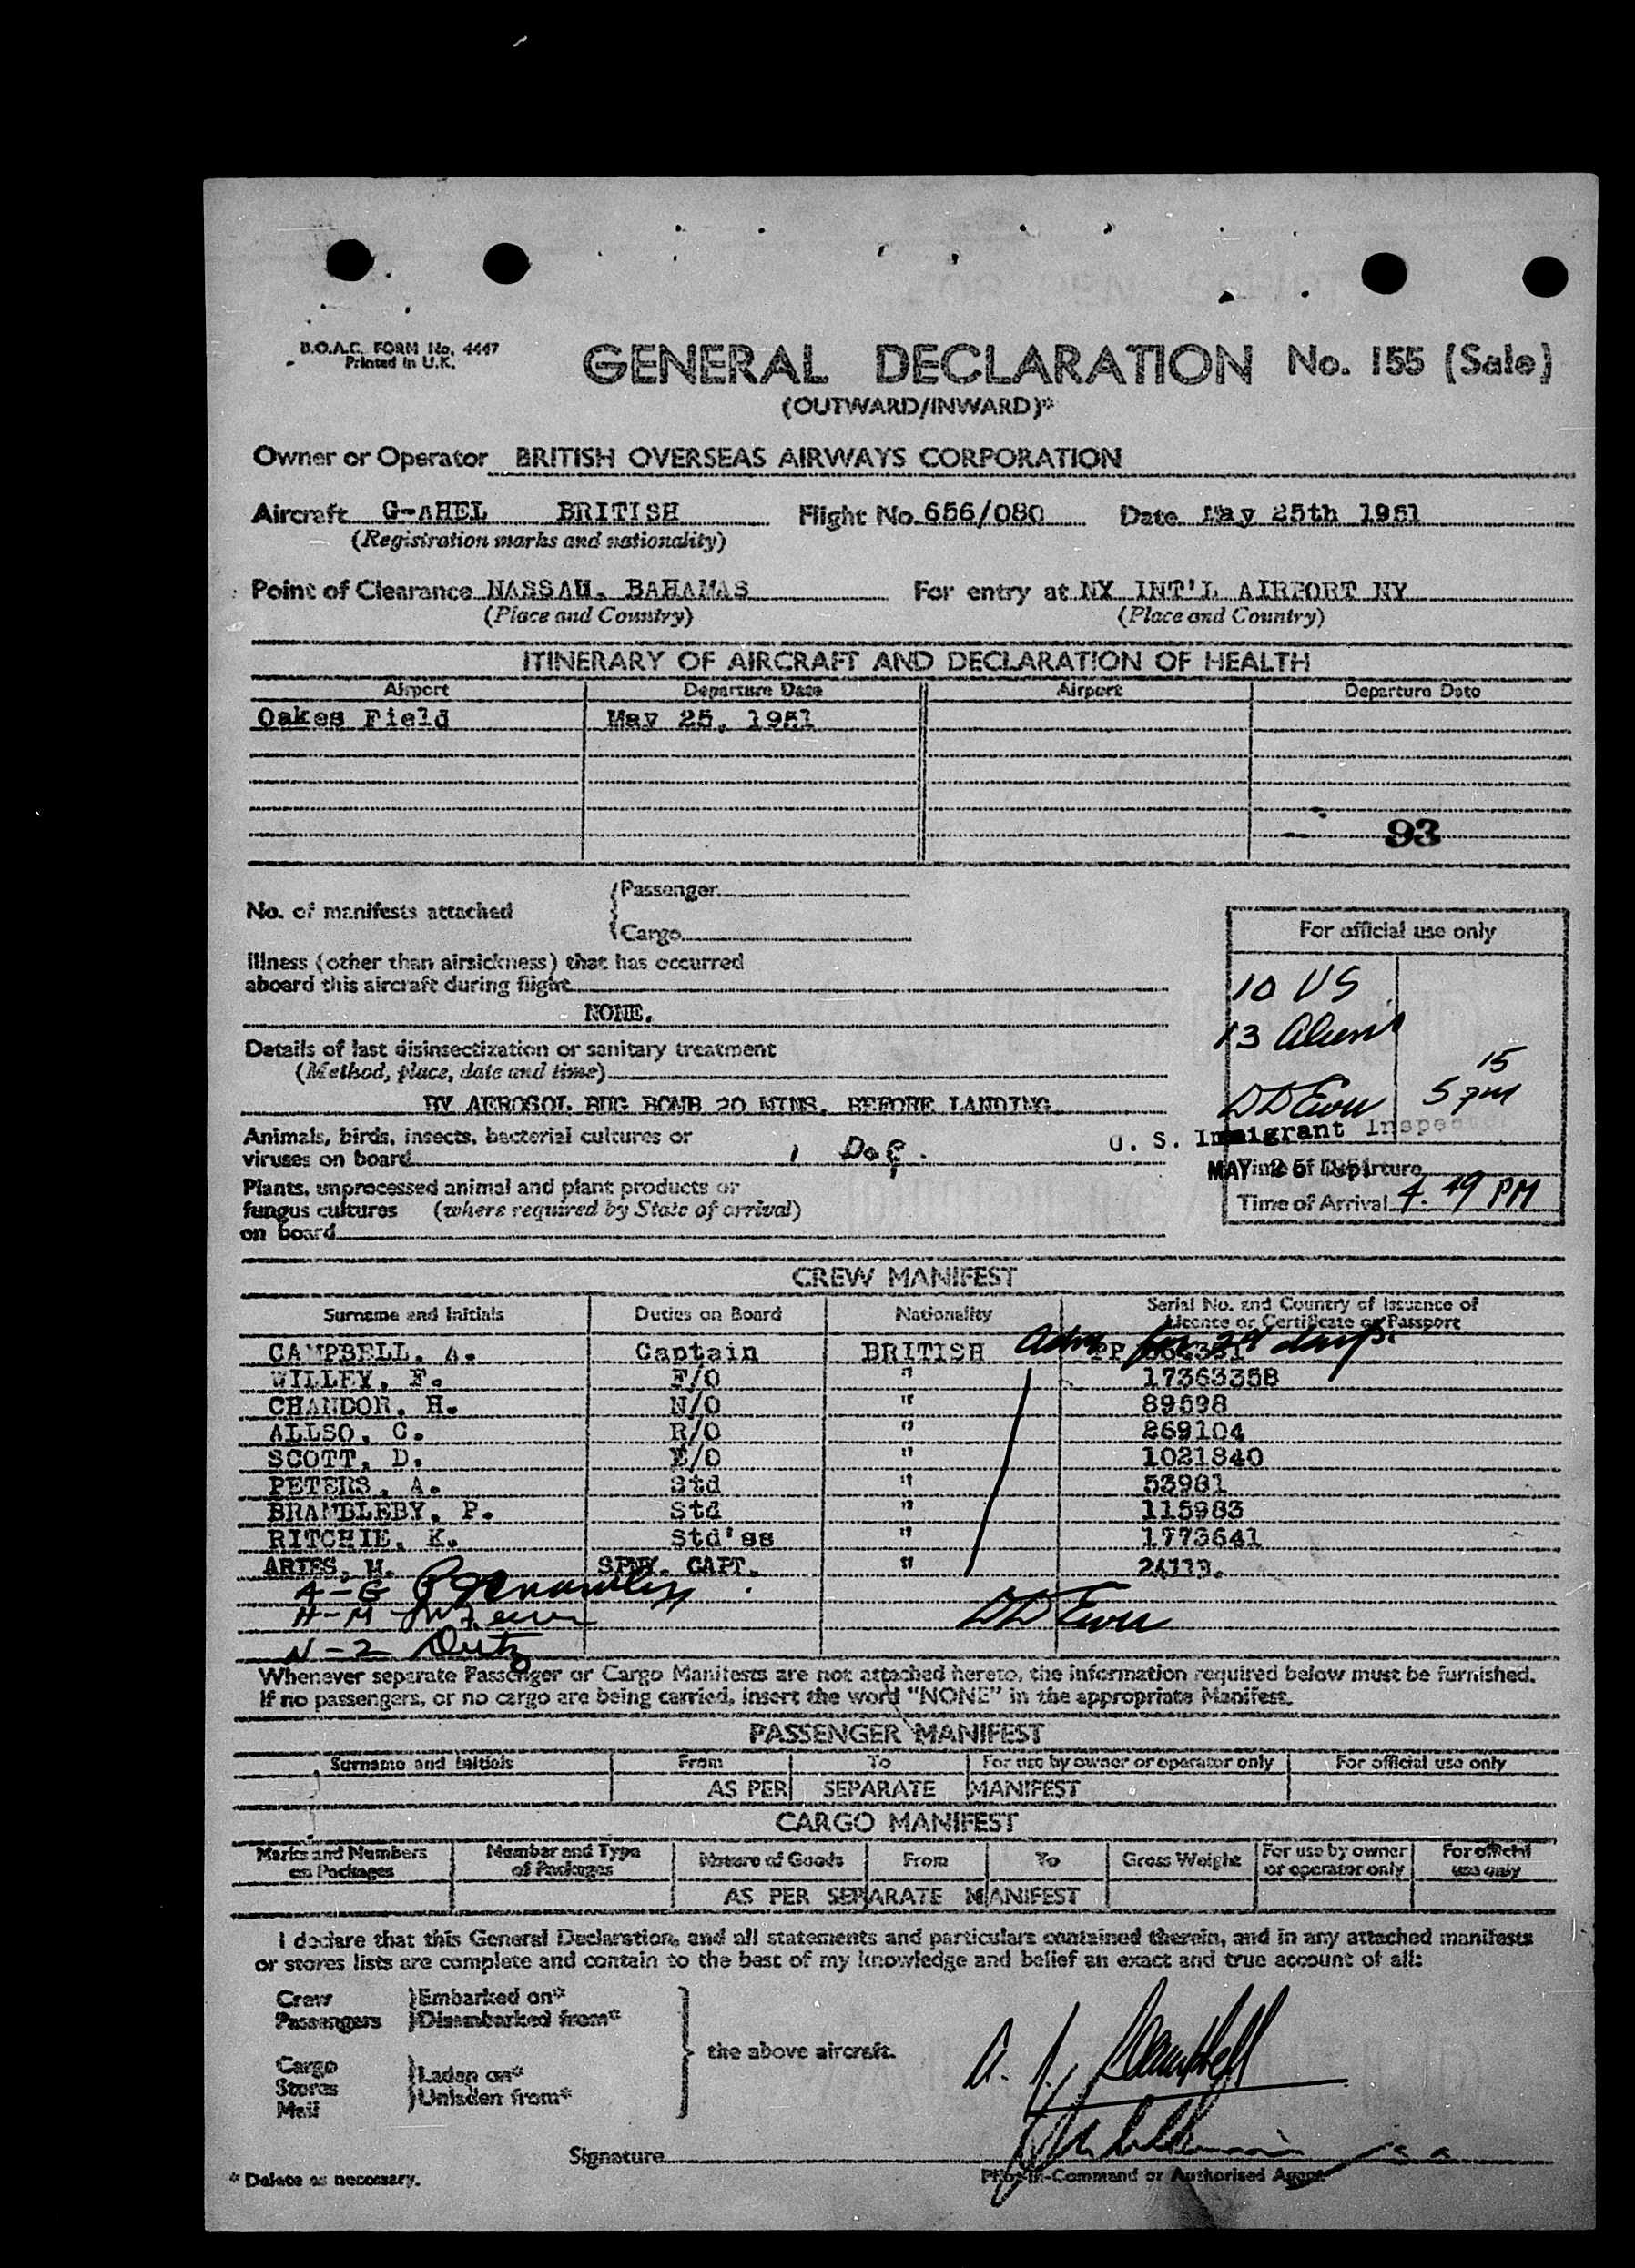 B.O.A.C. FORM No. 4447
Printed in U.K.
GENERAL DECLARATION No. 155 (Sale)
(OUTWARD/INWARD)*
Owner or Operator BRITISH OVERSEAS AIRWAYS CORPORATION
Aircraft G-AHEL BRITISH Flight No. 656/080 Date May 25th 1951
(Registration marks and nationality)
Point of Clearance NASSAU. BAHAMAS For entry at NY INT'L AIRPORT NY
(Place and Country) (Place and Country)
ITINERARY OF AIRCRAFT AND DECLARATION OF HEALTH
Airport Departure Date Airport Departure Date
Oakes Field May 25, 1951
93
No. of manifests attached
Passenger
Cargo
For official use only
Illness (other than airsickness) that has occurred
aboard this aircraft during flight
NONE.
10 US
13 Aliens
Details of last disinsectization or sanitary treatment
(Method, place, date and time)
15
5 pm
BY AEROSOL BUG BOMB 20 MINS. BEFORE LANDING
Animals, birds, insects, bacterial cultures or
viruses on board 1 Dog.
U. S. Immigrant Inspector
MAY 25 1951
Time of Departure
Plants, unprocessed animal and plant products or
fungus cultures (where required by State of arrival)
on board
Time of Arrival 4.49 PM
CREW MANIFEST
Surname and Initials Duties on Board Nationality Serial No. and Country of Issuance of
Licence or Certificate or Passport
CAMPBELL, A. Captain BRITISH PP
Adm for 29 days
WILLEY, F. F/O " 17363358
CHANDOR, H. N/O " 89598
ALLSO, C. R/O " 269104
SCOTT, D. E/O " 1021840
PETERS, A. Std " 53981
BRAMBLEBY, P. Std " 115983
RITCHIE, K. Std'ss " 1773641
ARIES, M. SPNY. CAPT. "
A-G
H-M
N-Z
Whenever separate Passenger or Cargo Manifests are not attached hereto, the information required below must be furnished.
If no passengers, or no cargo are being carried, insert the word "NONE" in the appropriate Manifest.
PASSENGER MANIFEST
Surname and Initials From To For use by owner or operator only For official use only
AS PER SEPARATE MANIFEST
CARGO MANIFEST
Marks and Numbers on Packages Number and Type of Packages Nature of Goods From To Gross Weight For use by owner or operator only For official use only
AS PER SEPARATE MANIFEST
I declare that this General Declaration, and all statements and particulars contained therein, and in any attached manifests
or stores lists are complete and contain to the best of my knowledge and belief an exact and true account of all:
Crew Embarked on*
Passengers Disembarked from*
the above aircraft.
Cargo Laden on*
Stores Unladen from*
Mail
A. J. Campbell
Signature
* Delete as necessary. Pilot-in-Command or Authorised Agent